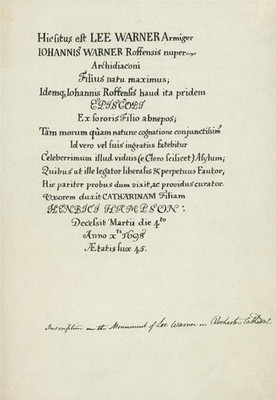 Hic situs est LEE WARNER Armiger
IOHANNIS WARNER Roffensis nuper
Archidiaconi
Filius natu maximus;
Idemq, Iohannis Roffensis haud ita pridem
EPISCOPI
Ex sororis Filio abnepos;
Tam morum quam nature cognatione conjunctissim9
Id vero vel suis ingratiis fatebitur
Celeberrimum illud viduis (e Clero scilicet) Asylum;
Quibus ut ille legator liberalis & perpetuus Fautor;
Hic pariter probus dum vixit, ac providus curator.
Uxorem duxit CATHARINAM Filiam
HENRICI HAMPSON:
Decessit Martii die 4to
Anno xti 1698
Ætatis suæ 45.
Inscription on the Monument of Lee Warner in Rochester Cathedral